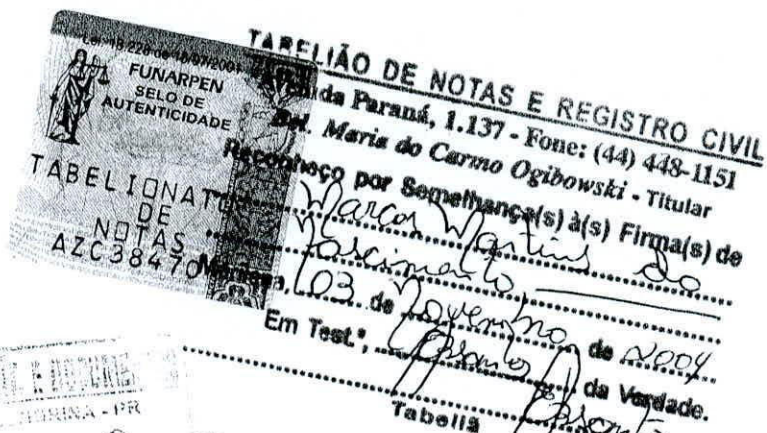 Lei 13.228 de 18/07/2001
FUNARPEN
SELO DE
AUTENTICIDADE
TABELIONATO
DE
NOTAS
AZC38470
TABELIÃO DE NOTAS E REGISTRO CIVIL
Avenida Paraná, 1.137 - Fone: (44) 448-1151
Bel. Maria do Carmo Ogibowski - Titular
Reconheço por Semelhança(s) à(s) Firma(s) de
Marcos Martins do
Nascimento
03 de Novembro de 2004
Em Test.º, da Verdade.
Tabeliã
- PR